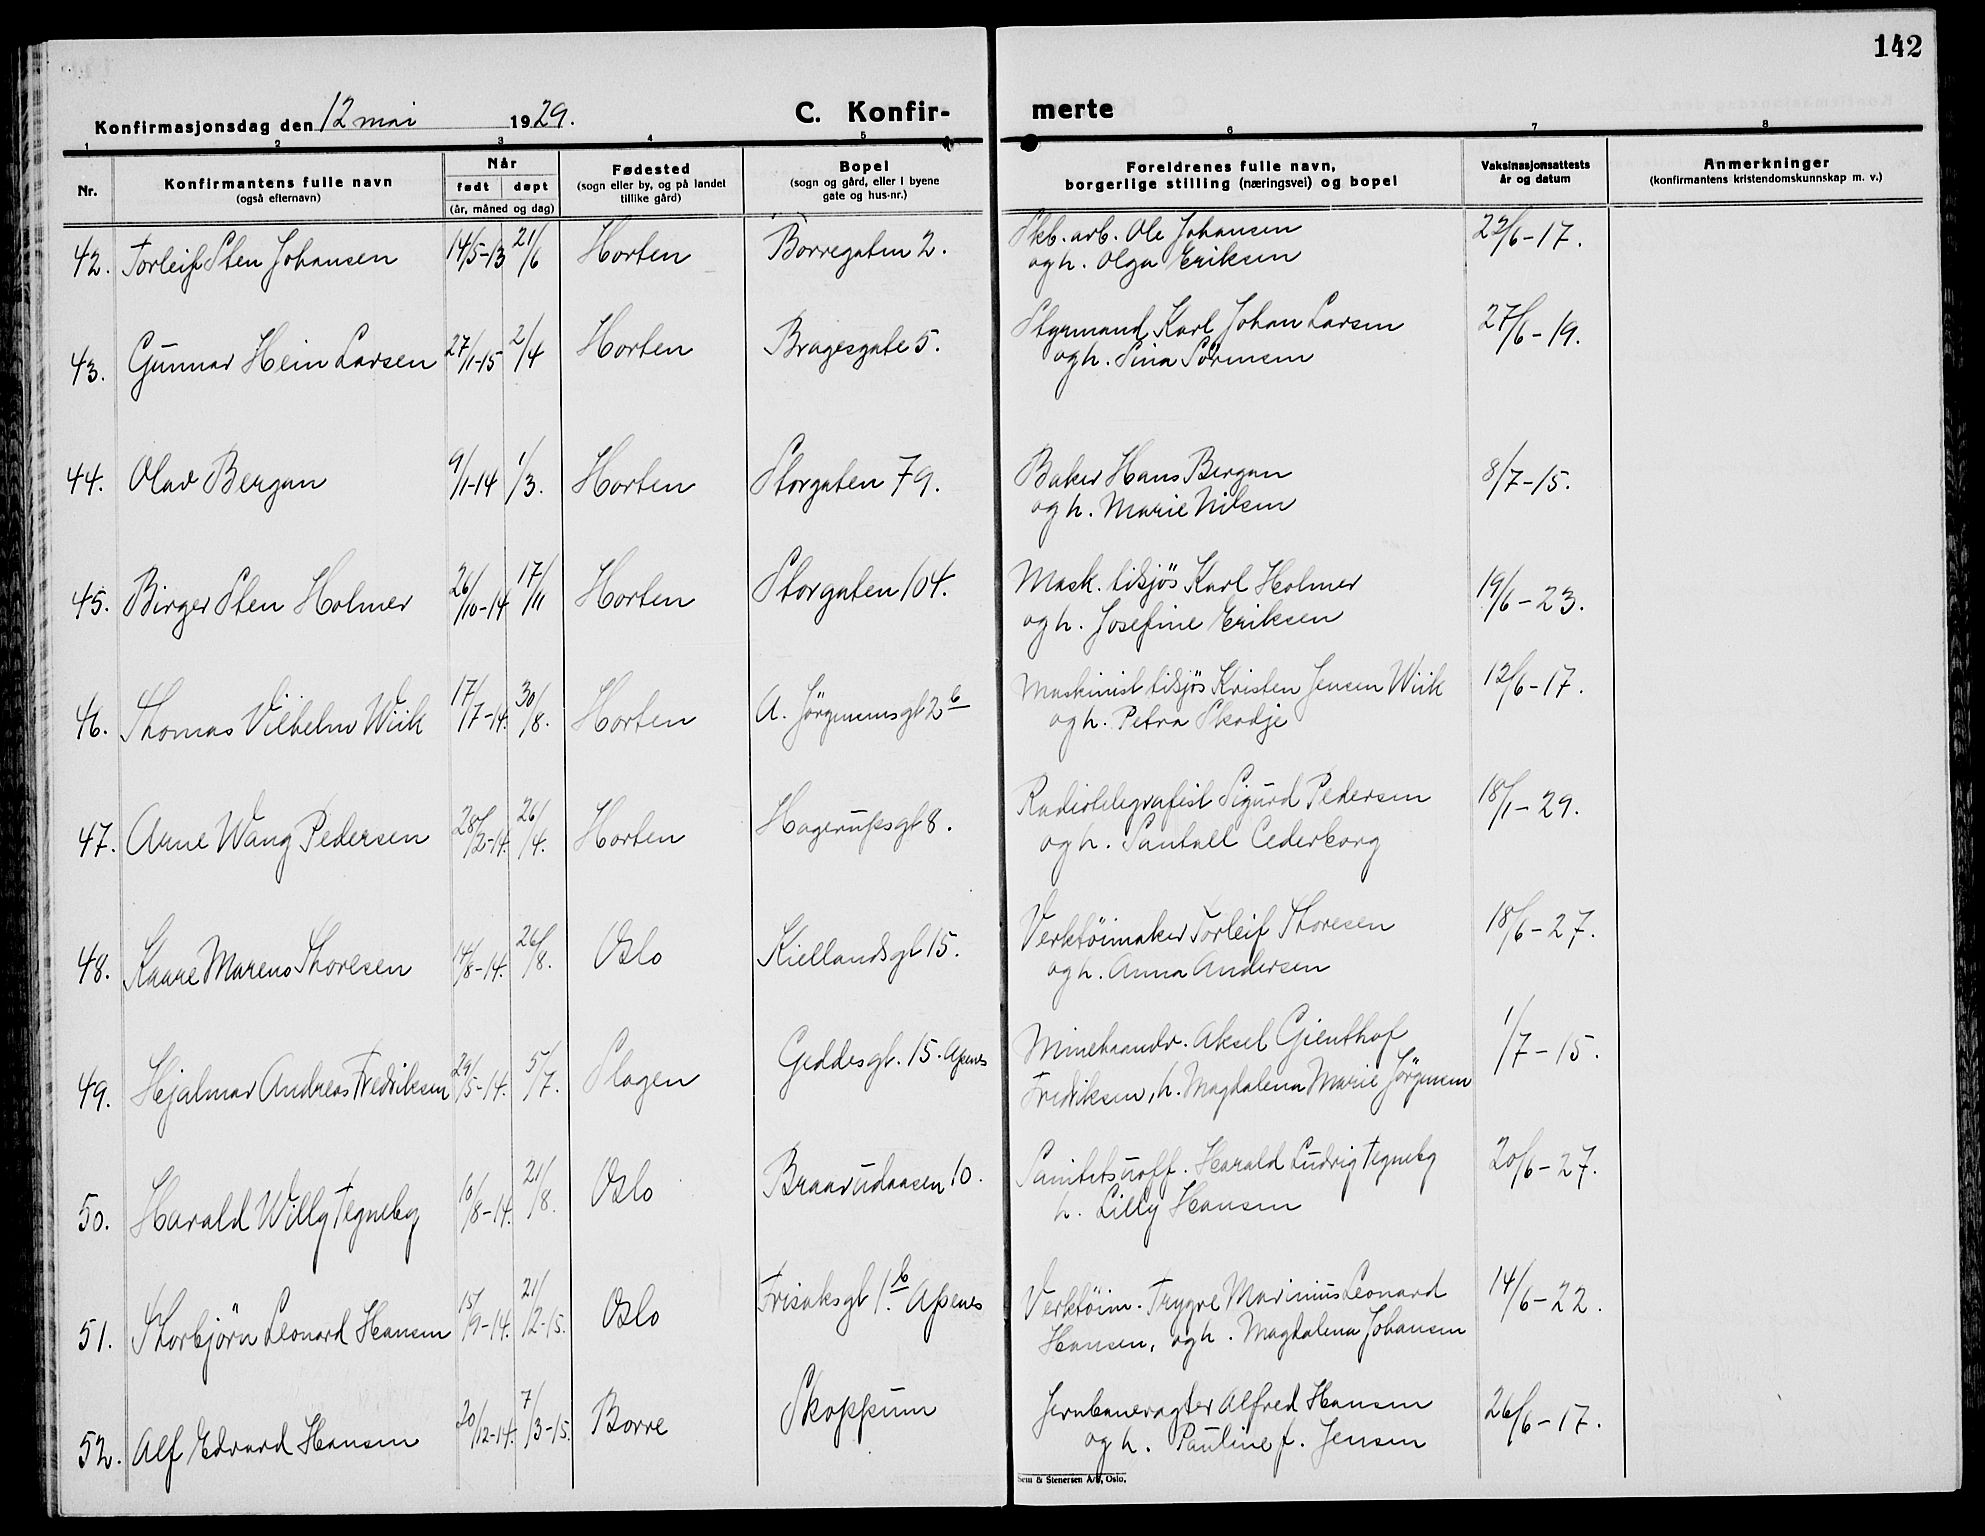 142
Konfirmasjonsdag den 12 mai 1929.
C. Konfir- merte
1 2 3 4 5 6 7 8
Nr.
Konfirmantens fulle navn
(også efternavn)
Når
født døpt
(år, måned og dag)
Fødested
(sogn eller by, og på landet
tillike gård)
Bopel
(sogn og gård, eller i byene
gate og hus-nr.)
Foreldrenes fulle navn,
borgerlige stilling (næringsvei) og bopel
Vaksinasjonsattests
år og datum
Anmerkninger
(konfirmantens kristendomskunnskap m. v.)
42. Torleif Sten Johansen 14/5-13 21/6 Horten Borregaten 2. Skb. arb. Ole Johansen 22/6-17.
og h. Olga Eriksen
43. Gunnar Hein Larsen 27/1-15 2/4 Horten Bragesgate 5. Styrmand Karl Johan Larsen 27/6-19.
og h. Sina Sörensen
44. Olav Bergan 9/1-14 1/3. Horten Storgaten 79. Baker Hans Bergan 8/7-15.
og h. Marie Nilsen
45. Birger Sten Holmer 26/10-14 17/11 Horten Storgaten 104. Mask. tilsjøs Karl Holmer 19/6-23.
og h. Josefine Eriksen
46. Thomas Vilhelm Wiik 17/17-14. 30/8. Horten A. Jörgensensgt 2b Maskinist tilsjøs Kristen Jensen Wiik 12/6-17.
og h. Petra Skodje
47. Arne Wang Pedersen 28/2-14. 26/4. Horten Hagerupsgt 8. Radiotelegrafist Sigurd Pedersen 18/1-29.
og h. Santall Cederborg
48. Kaare Marens Thoresen 14/8-14. 26/8. Oslo Kiellandsgt 15. Verktöimaker Torleif Thoresen 18/6-27.
og h. Anna Andersen
49. Hjalmar Andreas Fredriksen 29/5-14. 5/7. Slagen Geddesgt. 15. Apenes Minehaandv. Aksel Gienthof 1/7-15.
Fredriksen, h. Magdalena Marie Jörgensen
50. Harald Willy Tegneby 10/8-14. 21/8. Oslo Braarudaasen 10. Sanitetsuoff. Harald Ludvig Tegneby 20/6-27.
h. Lilly Hansen
51. Thorbjörn Leonard Hansen 15/9-14. 21/12-15. Oslo Frisaksgt 1.b Apenes Verktöim. Trygve Marinius Leonard 14/6-22.
Hansen, og h. Magdalena Johansen
52. Alf Edvard Hansen 20/12-14. 7/3-15. Borre Skoppum Jernbanevagter Alfred Hansen 26/6-17.
og h. Pauline f. Jensen
Sem & Stenersen A/S, Oslo.